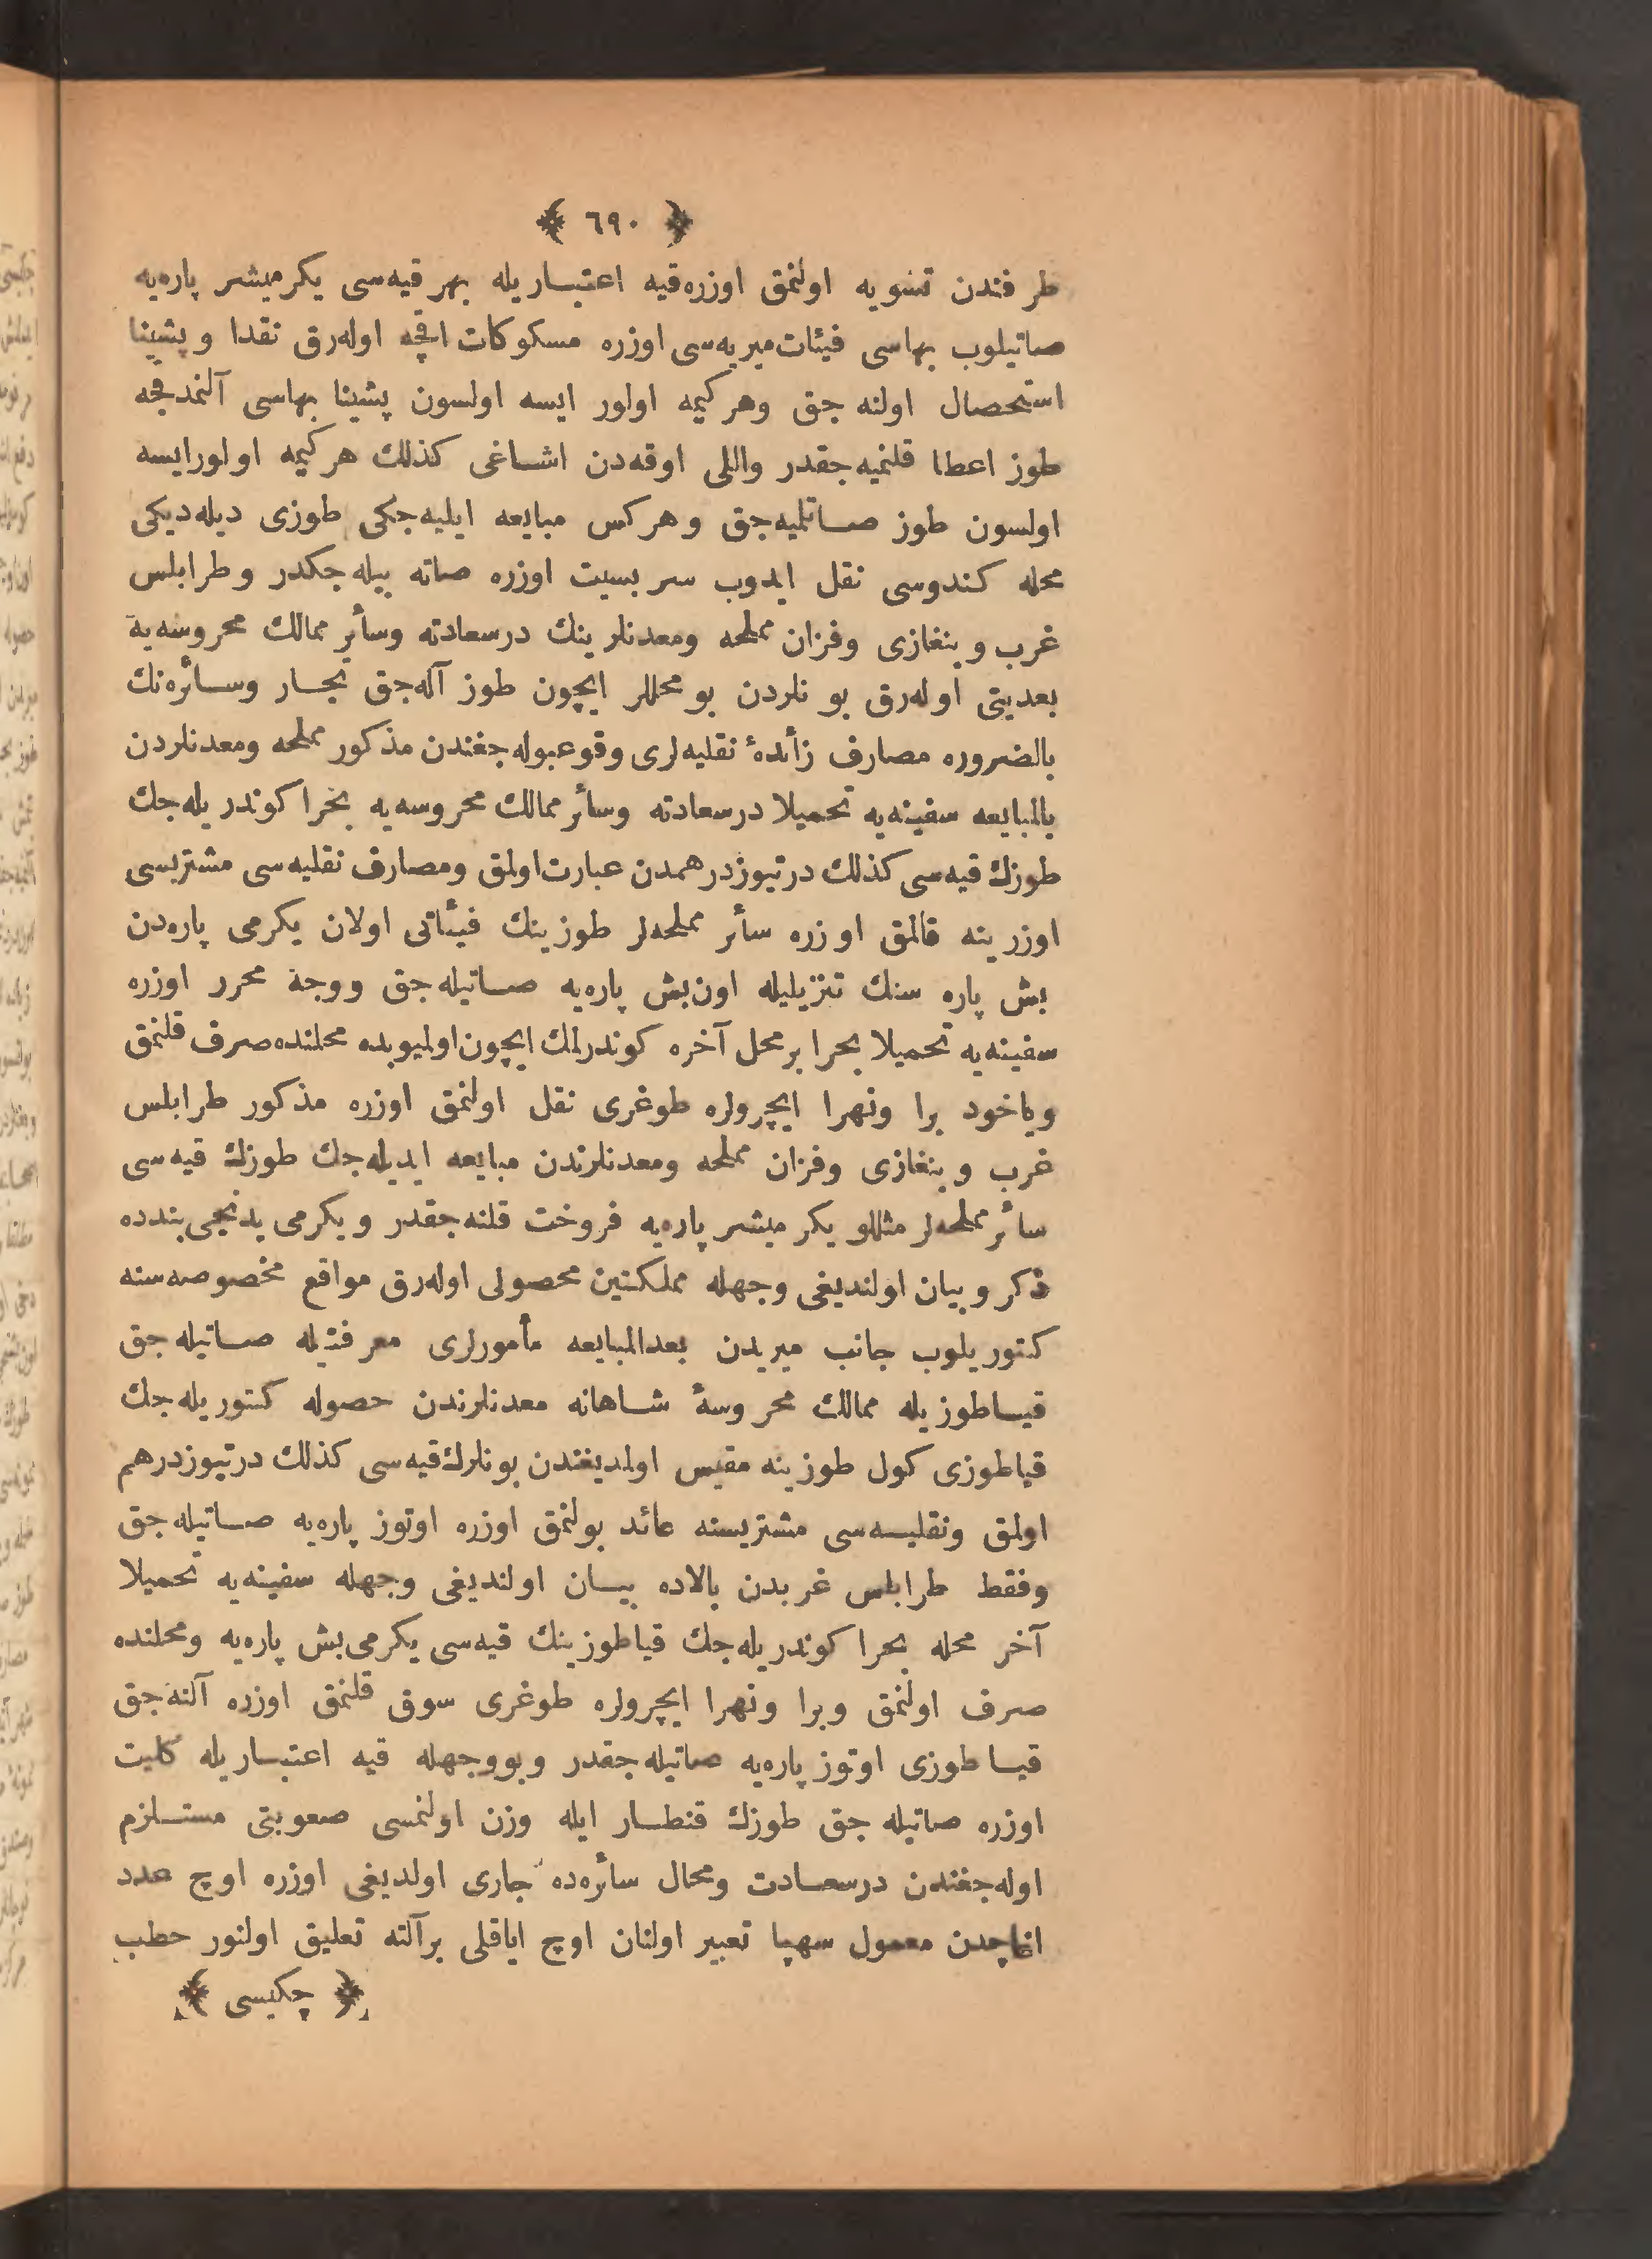 ﴿ ٦٩٠ ﴾
طرفندن تسويه اولنمق اوزره‌قيه اعتباريله بهرقيه‌سی يكرميشر پاره‌يه
صاتيلوب بهاسی فيئات‌ميريه‌سی اوزره مسكوكات اقچه اوله‌رق نقدا وپشينا
استحصال اولنه جق وهر كيمه اولور ايسه اولسون پشينا بهاسی آلنمدقجه
طوز اعطا قلنميه‌جقدر واللی اوقه‌دن اشاغی كذلك هر كيمه اولورايسه
اولسون طوز صاتلميه‌جق وهركس مبايعه ايليه‌جكی طوزی ديله‌ديكی
محله كندوسی نقل ايدوب سربسيت اوزره صاته بيله‌جكدر وطرابلس
غرب وبنغازی وفزان مملحه ومعدنلرينك درسعادته وسأئر ممالك محروسه‌يه
بعديتی اوله‌رق بونلردن بومحللر ايچون طوز آله‌جق تجار وسائره‌نك
بالضروره مصارف زأئدهٔ نقليه‌لری وقوعبوله‌جغندن مذكور مملحه ومعدنلردن
بالمبايعه سفينه‌يه تحميلا درسعادته وسأئر ممالك محروسه‌يه بحرا كوندريله‌جك
طوزك قيه‌سی كذلك درتيوزدرهمدن عبارت‌اولمق ومصارف نقليه‌سی مشتريسی
اوزرينه قالمق اوزره سأئر مملحه‌لر طوزينك فيئاتی اولان يكرمی پاره‌دن
بش پاره سنك تنزيليله اون‌بش پاره‌يه صاتيله‌جق ووجه محرر اوزره
سفينه‌يه تحميلا بحرا برمحل آخره كوندرلمك ايچون‌اولميوبده محلنده‌صرف قلنمق
وياخود برا ونهرا ايچرولره طوغری نقل اولنمق اوزره مذكور طرابلس
غرب وبنغازی وفزان مملحه ومعدنلرندن مبايعه ايديله‌جك طوزك قيه‌سی
سأئر مملحه‌لر مثللو يكرميشر پاره‌يه فروخت قلنه‌جقدر ويكرمی يدنجی‌بندده
ذكر وبيان اولنديغی وجهله مملكتين محصولی اوله‌رق مواقع مخصوصه‌سنه
كتوريلوب جانب ميريدن بعدالمبايعه مأمورلری معرفتيله صاتيله‌جق
قياطوزيله ممالك محروسهٔ شاهانه معدنلرندن حصوله كتوريله‌جك
قياطوزی كول طوزينه مقيس اولمديغندن بونلرك‌قيه‌سی كذلك درتيوزدرهم
اولمق ونقليه‌سی مشتريسنه عائد بولنمق اوزره اوتوز پاره‌يه صاتيله‌جق
وفقط طرابلس غربدن بالاده بيان اولنديغی وجهله سفينه‌يه تحميلا
آخر محله بحرا كوندريله‌جك قياطوزينك قيه‌سی يكرمی‌بش پاره‌يه ومحلنده
صرف اولنمق وبرا ونهرا ايچرولره طوغری سوق قلنمق اوزره آلنه‌جق
قياطوزی اوتوز پاره‌يه صاتيله‌جقدر وبووجهله قيه اعتباريله كليت
اوزره صاتيله جق طوزك قنطار ايله وزن اولنمسی صعوبتی مستلزم
اوله‌جغندن درسعادت ومحال سأئره‌ده جاری اولديغی اوزره اوچ عدد
اغاچدن معمول سهپا تعبير اولنان اوچ اياقلی برآلته تعليق اولنور حطب
﴿ چكيسی ﴾